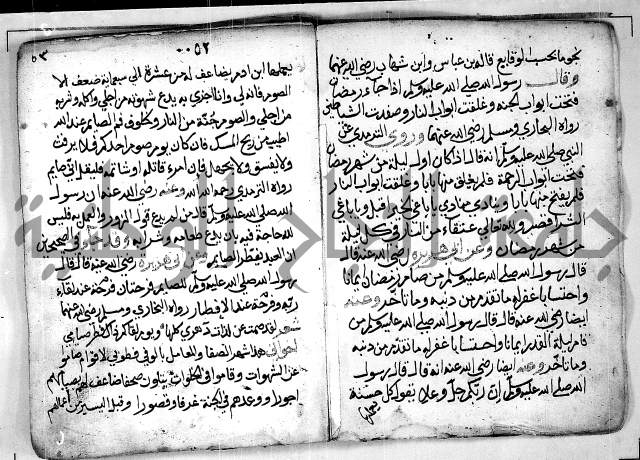 نجوما بحسب الوقايع قاله بن عباس وابن شهاب رضي الله عنهما
وقال رسول الله صلى الله عليه وسلم اذا جاء رمضان
فتحت ابواب الجنة وغلقت ابواب النار وصفدت الشياطين
رواه البخاري ومسلم رضي الله عنهما وروى الترمذي عن
النبي صلى الله عليه وسلم انه قال اذا كان اول ليلة من شهر رمضان
فتحت ابواب الرحمة فلم يغلق منها بابا وغلقت ابواب النار
فلم يفتح منها بابا وينادي منادي يا باغي الخير اقبل ويا باغي
الشر اقصر ولله تعالى عتقاء من النار في كل ليلة
من شهر رمضان وعن ابي هريرة رضي الله عنه قال
قال رسول الله صلى الله عليه وسلم من صام رمضان ايمانا
واحتسابا غفر له ما تقدم من ذنبه وما تاخر وعنه
ايضا رضي الله عنه قال قال رسول الله صلى الله عليه وسلم من
قام ليلة القدر ايمانا واحتسابا غفر له ما تقدم من ذنبه
وما تاخر وعنه ايضا رضي الله عنه انه قال قال رسول
الله صلى الله عليه وسلم ان ربكم جل وعلا يقول كل حسنة
يعملها
٥٣ ٠٠٥٢
يعملها ابن ادم يضاعف له من عشرة الى سبعماية ضعف الا
الصوم فانه لي وانا اجزي به يدع شهوته من اجلي واكله وشربه
من اجلي والصوم جنة من النار وخلوف فم الصايم عند الله
اطيب من ريح المسك فان كان يوم صوم احدكم فلا يرفث
ولا يفسق ولا يجهل فان امرء قاتله او شاتمه فليقل اني صايم
رواه الترمذي رحمه الله وعنه رضي الله عنه ان رسول
الله صلى الله عليه وسلم قال من لم يدع قول الزور والعمل به فليس
لله حاجة فيه بان يدع طعامه وشرابه وقد جاء في الصحيحين
ان العبد يفطر الصايم عن ابي هريرة رضي الله عنه قال قال
رسول الله صلى الله عليه وسلم للصايم فرحتان فرحة عند لقاء
ربه وفرحة عند الافطار رواه البخاري ومسلم رضي الله عنهما
شعر لقد صمت عن لذات دهري كلها ويوم لقاكم ذاك فطر صيامي
اخواني هذا شهر الصفا والمعامل بالوفي فطوبى لاقوام صاموا
عن الشهوات وقاموا في الخلوات يتلون صحفا ضاعف لهم بصيامهم
اجورا ووعدهم في الجنة غرفا وقصورا وقبل اليسير من اعمالهم
جامعة النجاح الوطنية